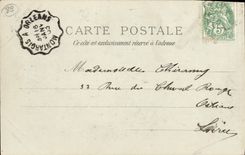 88
MONTARGIS A ORLEANS
CARTE POSTALE
Ce côté est exclusivement réservé à l'adresse
Mademoiselle Théramy
33 Rue du Cheval Rouge
Orléans
Loiret